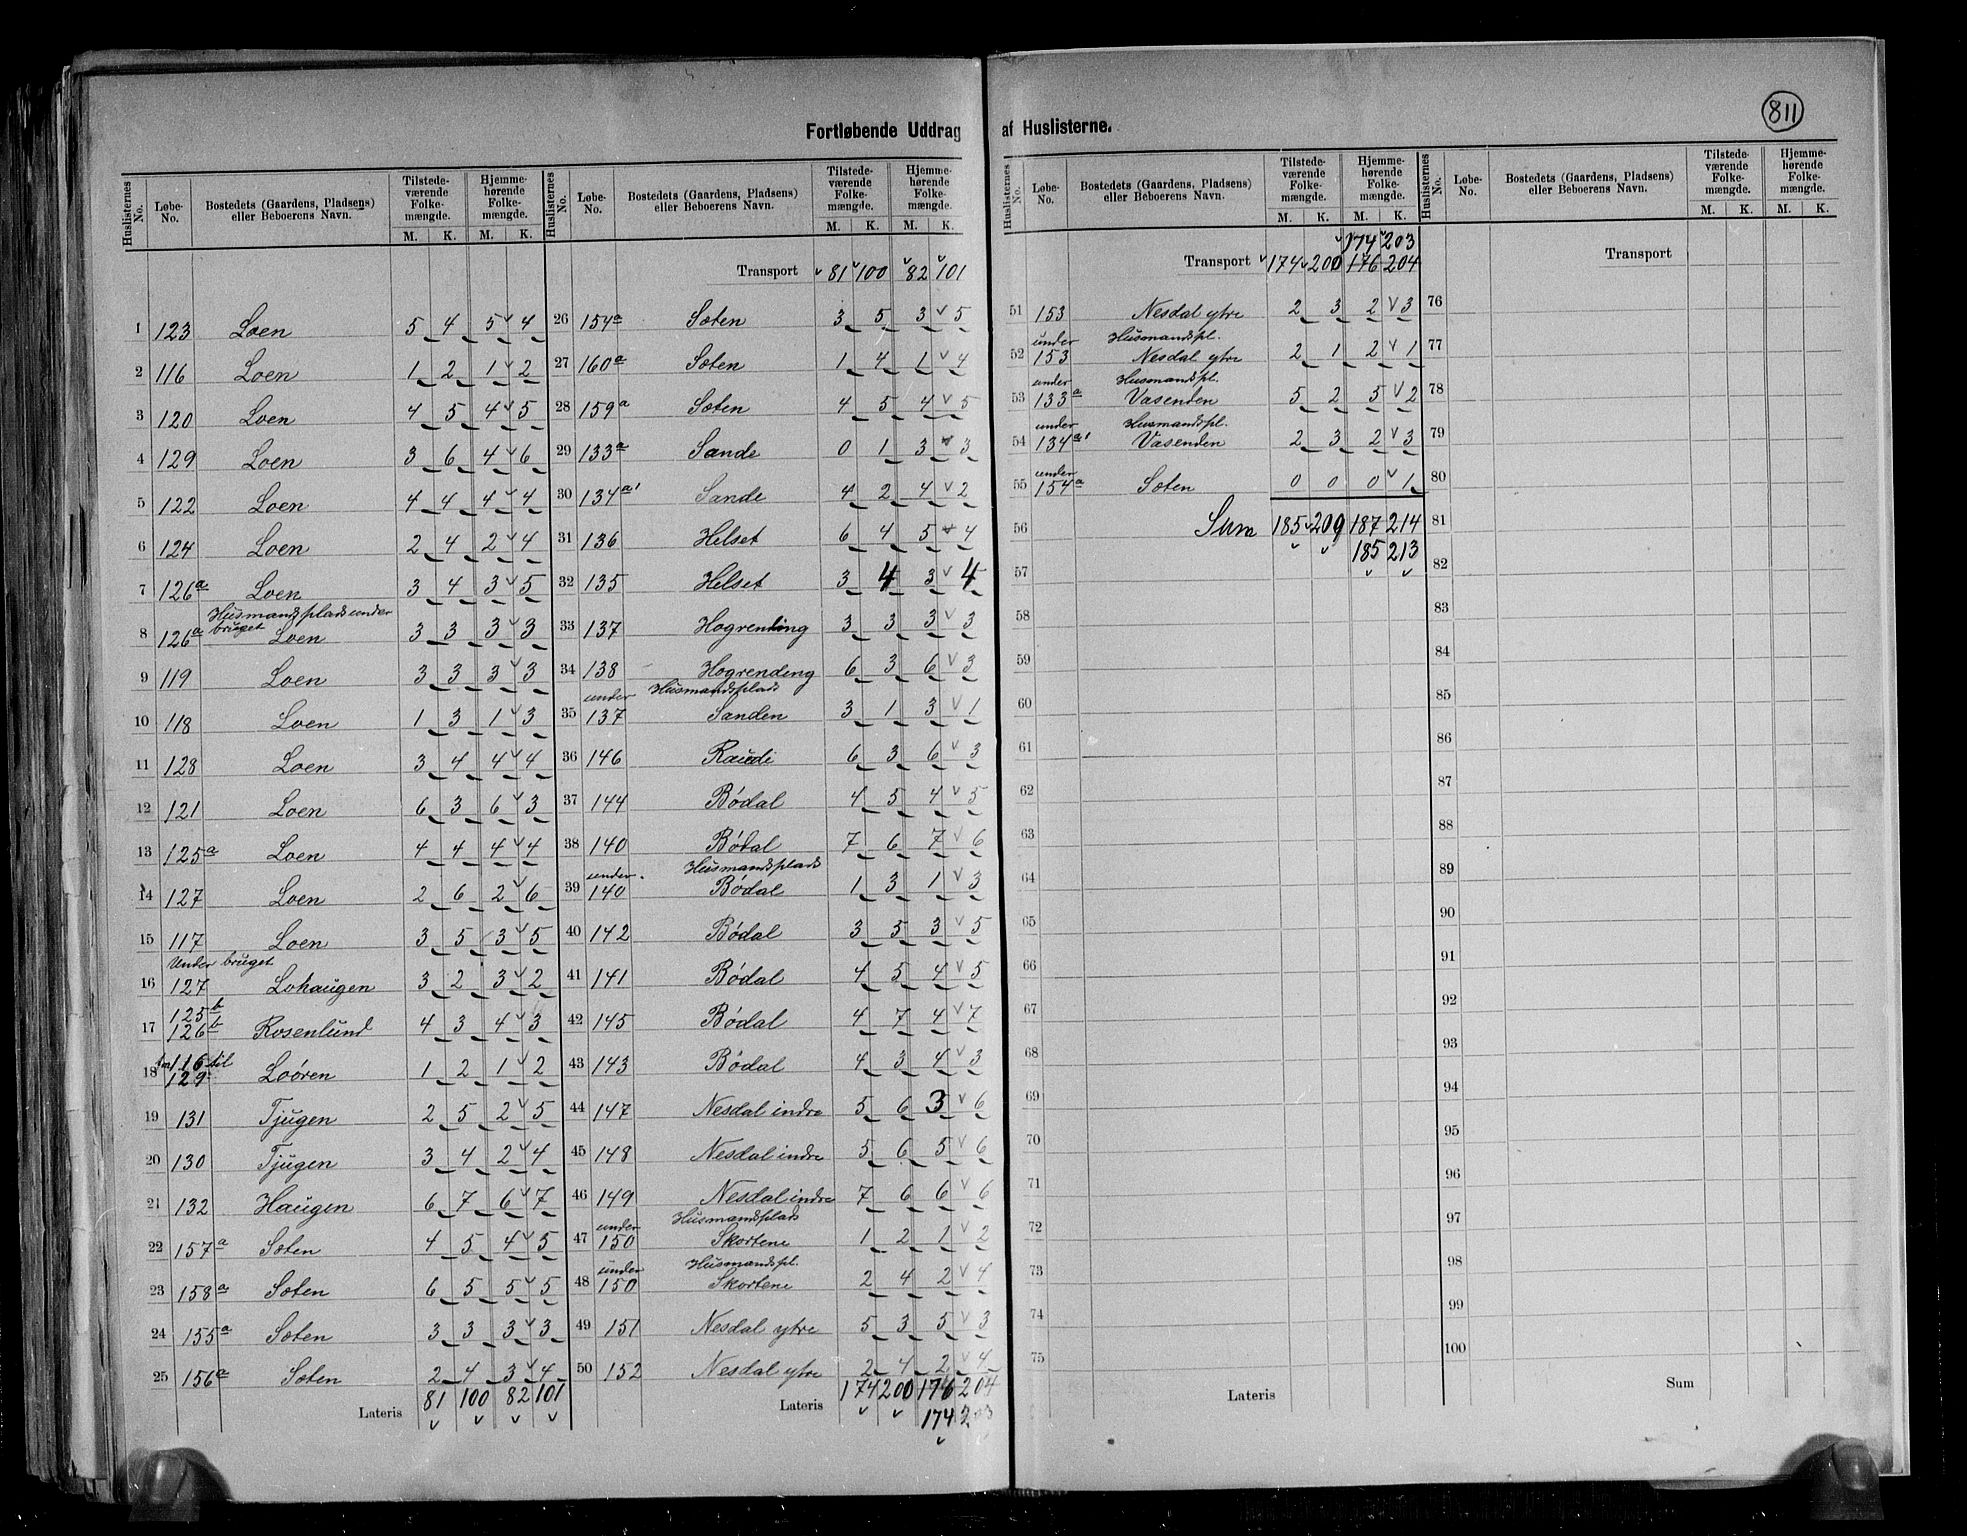 811
Fortløbende Uddrag af Huslisterne.
Huslisternes No. Løbe-No. Bostedets (Gaardens, Pladsens) eller Beboerens Navn. Tilstedeværende Folkemængde. M. K. Hjemmehørende Folkemængde. M. K.
1 123 Loen 5 4 5 4
2 116 Loen 1 2 1 2
3 120 Loen 4 5 4 5
4 129 Loen 3 6 4 6
5 122 Loen 4 4 4 4
6 124 Loen 2 4 2 4
7 126a Loen 3 4 3 5
8 126a Husmandsplads under bruget Loen 3 3 3 3
9 119 Loen 3 3 3 3
10 118 Loen 1 3 1 3
11 128 Loen 3 4 4 4
12 121 Loen 6 3 6 3
13 125a Loen 4 4 4 4
14 127 Loen 2 6 2 6
15 117 Loen 3 5 3 5
16 Under bruget 127 Lohaugen 3 2 3 2
17 125b 126b Rosenlund 4 3 4 3
18 116 til 129 Loøren 1 2 1 2
19 131 Tjugen 2 5 2 5
20 130 Tjugen 3 4 2 4
21 132 Haugen 6 7 6 7
22 157a Sæten 4 5 4 5
23 158a Sæten 6 5 5 5
24 155a Sæten 3 3 3 3
25 156a Sæten 2 4 3 4
Lateris 81 100 82 101
Huslisternes No. Løbe-No. Bostedets (Gaardens, Pladsens) eller Beboerens Navn. Tilstedeværende Folkemængde. M. K. Hjemmehørende Folkemængde. M. K.
Transport 81 100 82 101
26 154a Sæten 3 5 3 5
27 160a Sæten 1 4 1 4
28 159a Sæten 4 5 4 5
29 133a Sande 0 1 3 3
30 134a1 Sande 4 2 4 2
31 136 Helset 6 4 5 4
32 135 Helset 3 4 3 4
33 137 Hogrending 3 3 3 3
34 138 Hogrending 6 3 6 3
35 under 137 Husmandsplads Sanden 3 1 3 1
36 146 Raudi 6 3 6 3
37 144 Bødal 4 5 4 5
38 140 Bødal 7 6 7 6
39 under 140 Husmandsplads Bødal 1 3 1 3
40 142 Bødal 3 5 3 5
41 141 Bødal 4 5 4 5
42 145 Bødal 4 7 4 7
43 143 Bødal 4 3 4 3
44 147 Nesdal indre 5 6 3 6
45 148 Nesdal indre 5 6 5 6
46 149 Nesdal indre 7 6 6 6
47 under 150 Husmandsplads Skortene 1 2 1 2
48 under 150 Husmandspl. Skortene 2 4 2 4
49 151 Nesdal ytre 5 3 5 3
50 152 Nesdal ytre 2 4 2 4
Lateris 174 200 176 204
174 203
Huslisternes No. Løbe-No. Bostedets (Gaardens, Pladsens) eller Beboerens Navn. Tilstedeværende Folkemængde. M. K. Hjemmehørende Folkemængde. M. K.
174 203
Transport 174 200 176 204
51 153 Nesdal ytre 2 3 2 3
52 under 153 Husmandspl. Nesdal ytre 2 1 2 1
53 under 133a Husmandspl. Vasenden 5 2 5 2
54 under 134a1 Husmandspl. Vasenden 2 3 2 3
55 under 154a Sæten 0 0 0 1
56 Sum 185 209 187 214
185 213
57
58
59
60
61
62
63
64
65
66
67
68
69
70
71
72
73
74
75
Lateris
Huslisternes No. Løbe-No. Bostedets (Gaardens, Pladsens) eller Beboerens Navn. Tilstedeværende Folkemængde. M. K. Hjemmehørende Folkemængde. M. K.
Transport
76
77
78
79
80
81
82
83
84
85
86
87
88
89
90
91
92
93
94
95
96
97
98
99
100
Sum